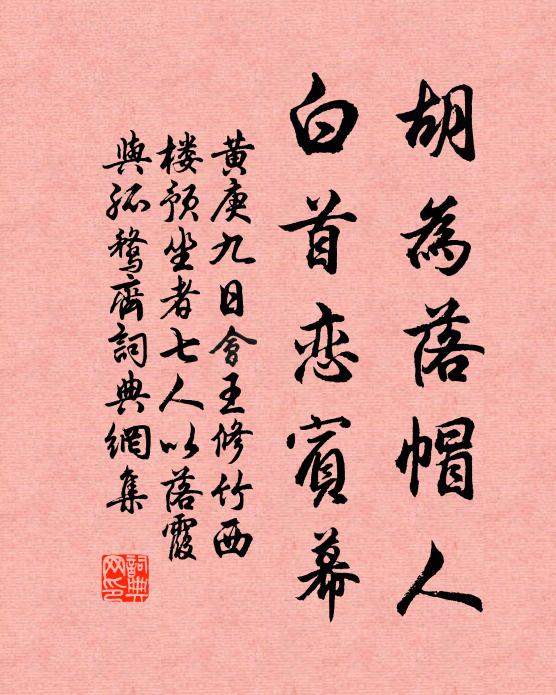 胡為落帽人
白首恋賓幕
黄庚九日會王修竹西
楼预坐者七人以落霞
與孤鶩齊詞典網集
詞典
网印